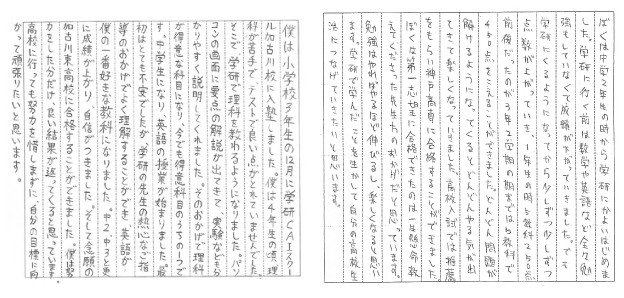 僕は小学校3年生の12月に学研CAIスクー
ル加古川校に入塾しました。僕は4年生の頃、理
科が苦手で、テストで良い点がとれていませんでした。
そこで、学研で理科を教わるようになりました。パソ
コンの画面に要点の解説が出てきて、実験なども分
かりやすく説明してくれました。そのおかげで理科
が得意な科目になり、今でも得意科目のうちの1つで
す。中学生になり、英語の授業が始まりました。最
初はとても不安でしたが、学研の先生の熱心なご指
導のおかげでよく理解することができ、英語が
僕の一番好きな教科になりました。中2、中3と更
に成績が上がり、自信がつきました。そして念願の
加古川東高校に合格することができました。僕は努
力をした分だけ、良い結果が返ってくると思っています。
高校に行っても努力を惜しまずに、自分の目標に向
かって頑張りたいと思います。
ぼくは中学2年生の時から学研にかよいはじめま
した。学研に行く前は数学や英語など全々勉
強もしていなくて成績が下がっていきました。でも
学研にくるようになってから少しずつ少しずつ
点数が上がっていき、1年生の時5教科250点
前後だったのが3年2学期の期末では5教科で
450点をこえることができました。どんどん問題が
解けるようになってくるとどんどんやる気が出
てきて楽しくなっていきました。高校入試では推薦
をもらい神戸高専に合格することができました。
ぼくは第一志望に合格できたのは一生懸命教
えてくださった先生方のおかげだと思っています。
勉強はやればやるほど伸びるし、楽しくなると思い
ます。学研で学んだことを生かして自分の高校生
活につなげていきたいと思います。